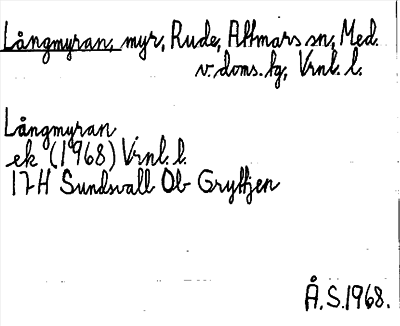 Långmyran, myr, Rude, Attmars sn, Med.
v. doms. hg, Vrnl. l.
Långmyran
ek (1968) Vrnl. l.
17H Sundsvall Ob Gryttjen
Å. S. 1968.